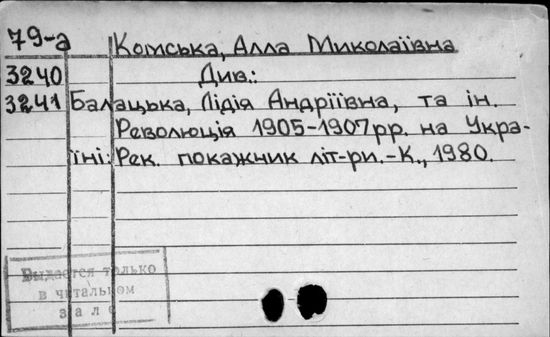 79-а Комська, Алла Миколаївна
3240 Див.:
3241 Балацька, Лідія Андріївна, та ін.
Революція 1905-1907рр. на Укра-
їні: Рек. покажник літ-ри.-К., 1980.
Выдается только
в читальном
зале